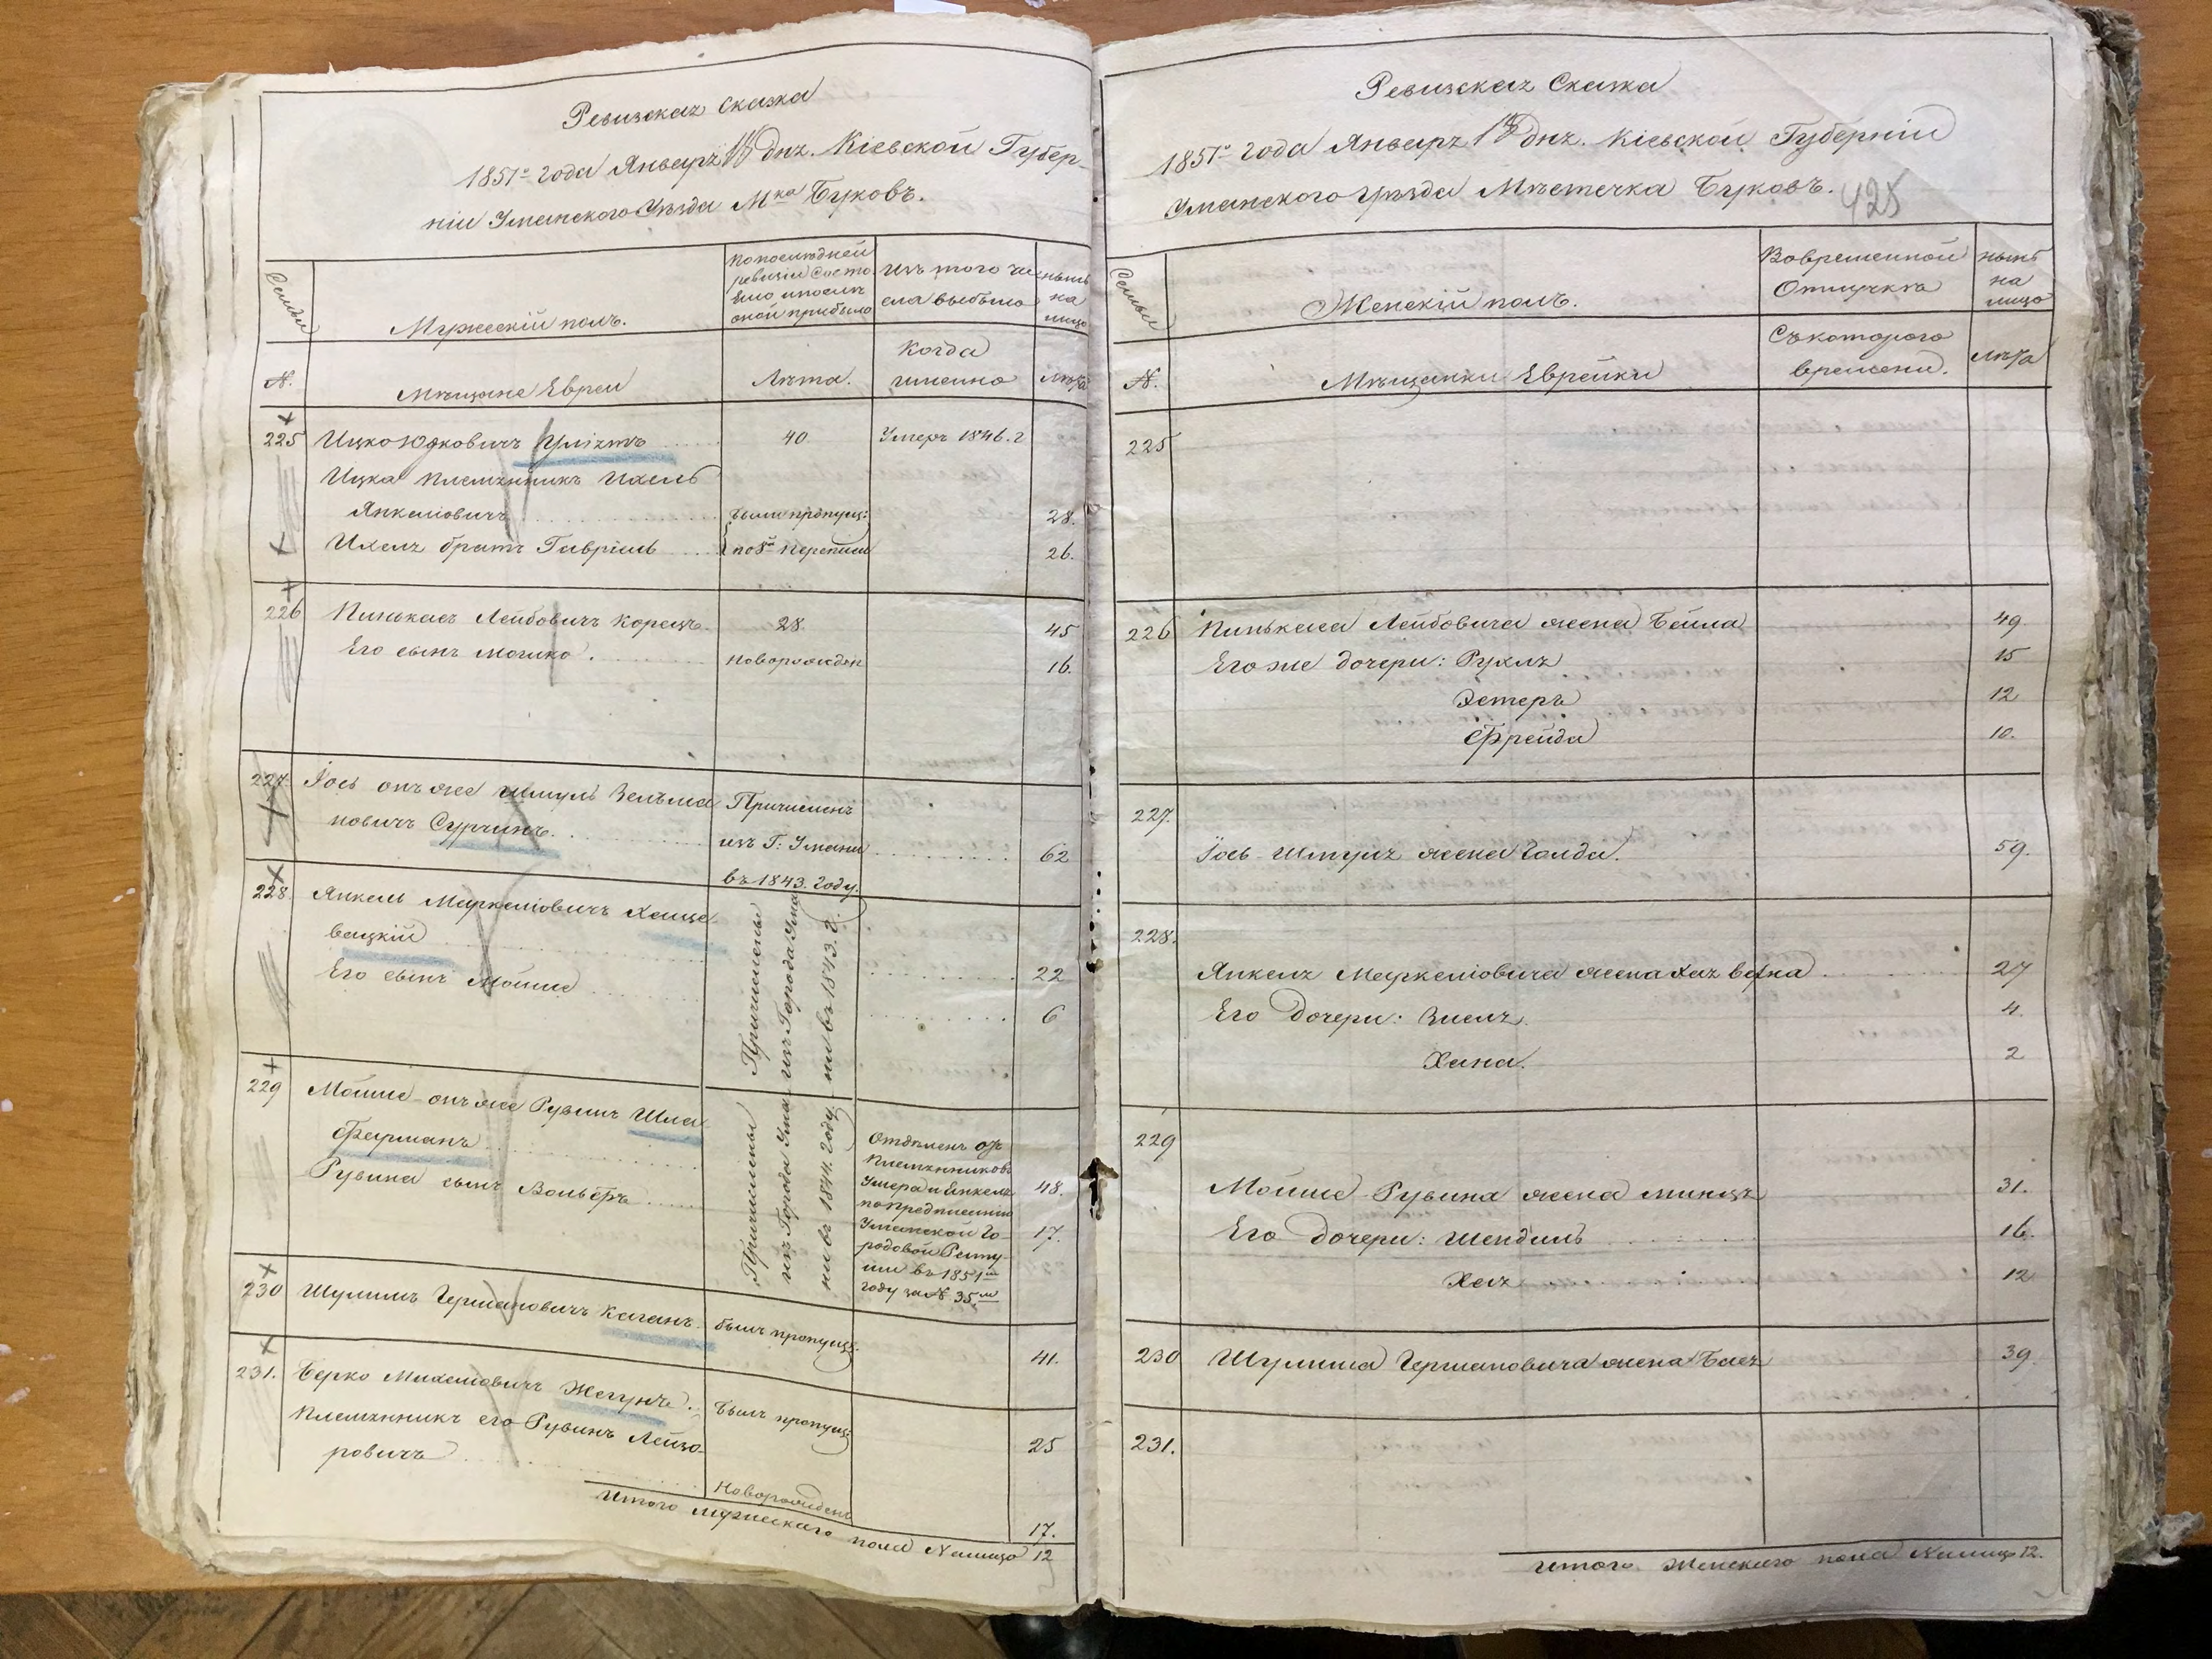 Ревизская Сказка
1851го года Января 18 дня. Кіевской Губер-
ніи Уманского Уѣзда Мка Буковъ.
Семьи
Мужескій полъ.
По последней
ревизіи Состо
яло и после
оной прибыло
Изъ того чи
сла выбыло
нынѣ
на
лицо
№.
Мѣщане Евреи
Лѣта.
Когда
именно
лѣта
225
Ицко Юдковичъ
40.
Умеръ 1846. г
Ицка племянникъ Ихель
Янкелiовичъ
были пропущ:
28.
Ихеля братъ Гавріиль
по 8й переписи
26.
226
Пинькасъ Лейбовичъ Корецъ.
28.
45
Его сынъ Мошко.
новорожден
16.
227.
Іось онъ же Шмуль Зельма
Причисленъ
новичъ Сурчинъ.
изъ Г: Умани
62
въ 1843. году.
228.
Янкель Меркелiовичъ Хаще
вацкій
22
Его сынъ Мойше
6
Причислены
изъ Города Ума
ни въ 1843. г.
229
Мойше онъ же Рувинъ Шла
ферманъ
48.
Рувина сынъ Вольфъ
17.
Причислены
изъ Города Ума
ни въ 1844. году
Отдѣленъ отъ
племянниковъ
Умера и Янкеля
по предписанію
Уманской Го-
родовой Рату-
ши въ 1851м
году за № 35м
230
Шулимъ Гершковичъ Каганъ
былъ пропущ:
41.
231.
Берко Михелiовичъ
былъ пропущ:
25
Племянникъ его Рувинъ Лейзо-
ровичъ
Новорожденъ
17.
Итого мужескаго пола Налицо 12
Ревизская Сказка
1851го года Января 18 дня. Кіевской Губерніи
Уманского уѣзда Мѣстечка Буковъ.
428
Семьи
Женскій полъ.
Во временной
Отлучкѣ
нынѣ
на
лицо
№.
Мѣщанки Еврейки
Съ котораго
времени.
лѣта
225
226
Пинькаса Лейбовича жена Бейла
49
Его же дочери: Рухля
15
Эстеръ
12
Фрейда
10.
227.
Іось-Шмуля жена Голда.
59.
228.
Янкеля Меркелiовича жена Хая
27
Его дочери: Зисля
4.
Хана.
2
229
Мойше-Рувина жена
31.
Его дочери: Шендиль
16.
Хая
12
230
Шулима жена Бася
39.
231.
Итого Женскаго пола Налицо 12.